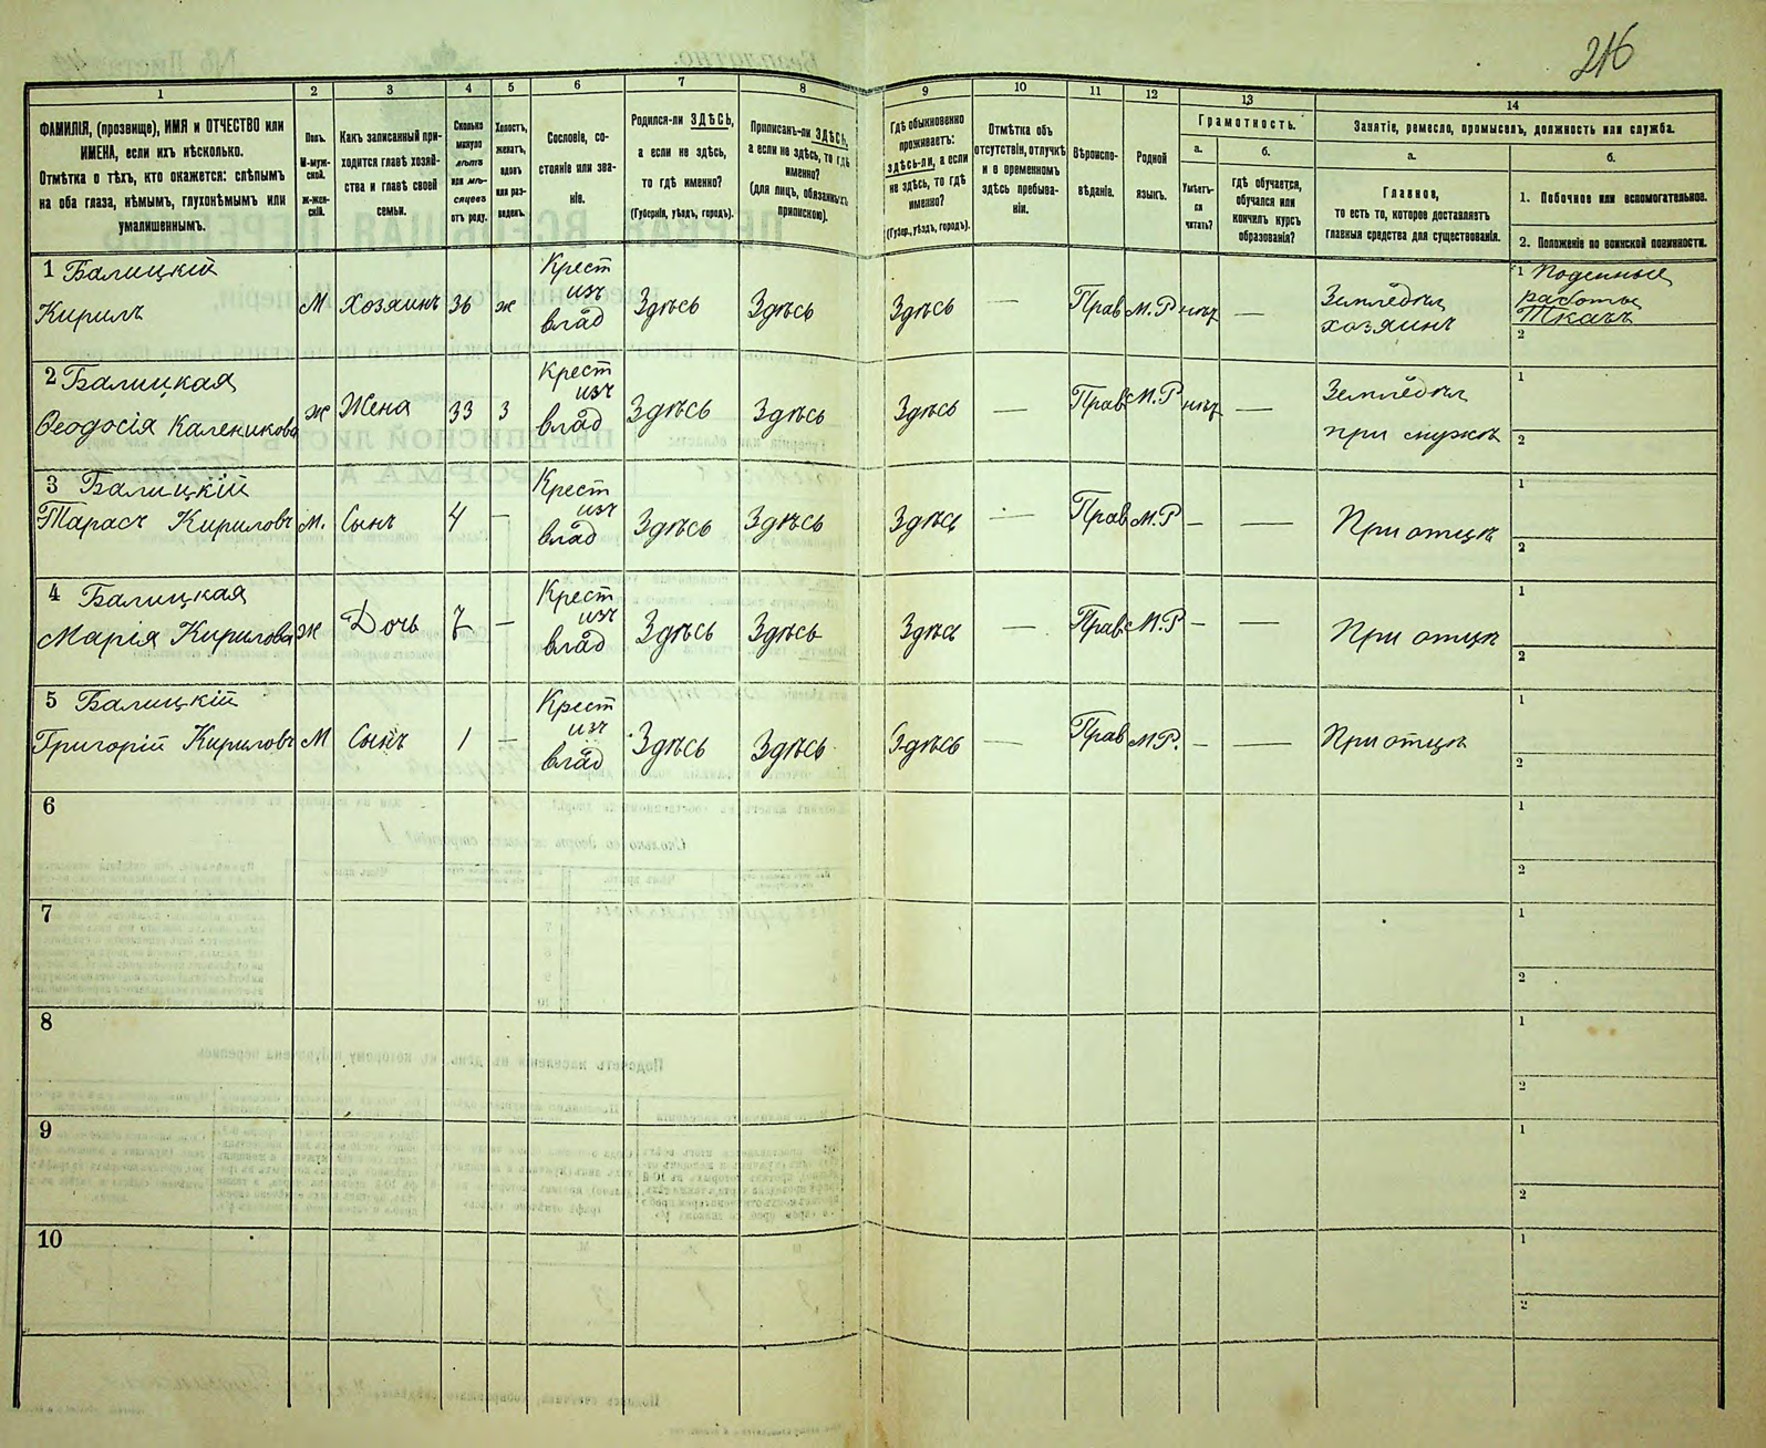 216
1
2
3
4
5
6
7
8
9
10
11
12
13
14
ФАМИЛІЯ, (прозвище), ИМЯ и ОТЧЕСТВО или
ИМЕНА, если ихъ нѣсколько.
Отмѣтка о тѣхъ, кто окажется: слѣпымъ
на оба глаза, нѣмымъ, глухонѣмымъ или
умалишеннымъ.
Полъ.
М-муж-
ской.
Ж-жен-
скій.
Какъ записанный при-
ходится главѣ хозяй-
ства и главѣ своей
семьи.
Сколько
минуло
лѣтъ
или мѣ-
сяцевъ
отъ роду.
Холостъ,
женатъ,
вдовъ
или раз-
веденъ.
Сословіе, со-
стояніе или зва-
ніе.
Родился-ли ЗДѢСЬ,
а если не здѣсь,
то гдѣ именно?
(Губернія, уѣздъ, городъ).
Приписанъ-ли ЗДѢСЬ,
а если не здѣсь, то гдѣ
именно?
(для лицъ, обязанныхъ
припискою).
Гдѣ обыкновенно
проживаетъ:
здѣсь-ли, а если
не здѣсь, то гдѣ
именно?
(Губер., уѣздъ, городъ).
Отмѣтка объ
отсутствіи, отлучкѣ
и о временномъ
здѣсь пребыва-
ніи.
Вѣроиспо-
вѣданіе.
Родной
языкъ.
Грамотность.
а.
Умѣетъ-
ли
читать?
б.
гдѣ обучается,
обучался или
кончилъ курсъ
образованія?
Занятіе, ремесло, промыселъ, должность или служба.
а.
Главное,
то есть то, которое доставляетъ
главныя средства для существованія.
б.
1. Побочное или вспомогательное.
2. Положеніе по воинской повинности.
1 Балицкій
Кирилъ
М
Хозяинъ
36
ж
Крест
изъ
влад
Здѣсь
Здѣсь
Здѣсь
—
Прав
М.Р
нѣт
—
Земледѣл
хозяинъ
1 Поденные
работы
Ткачъ
2
2 Балицкая
Ѳеодосія Каленикова
ж
Жена
33
З
Крест
изъ
влад
Здѣсь
Здѣсь
Здѣсь
—
Прав
М.Р
нѣт
—
Земледѣл
при мужѣ
1
2
3 Балицкій
Тарасъ Кириловъ
М.
Сынъ
4
—
Крест
изъ
влад
Здѣсь
Здѣсь
Здѣсь
—
Прав
М.Р
—
—
При отцѣ
1
2
4 Балицкая
Марія Кирилова
ж
Дочь
7
—
Крест
изъ
влад
Здѣсь
Здѣсь
Здѣсь
—
Прав
М.Р
—
—
При отцѣ
1
2
5 Балицкій
Григорій Кириловъ
М
Сынъ
1
—
Крест
изъ
влад
Здѣсь
Здѣсь
Здѣсь
—
Прав
М.Р.
—
—
При отцѣ
1
2
6
1
2
7
1
2
8
1
2
9
1
2
10
1
2